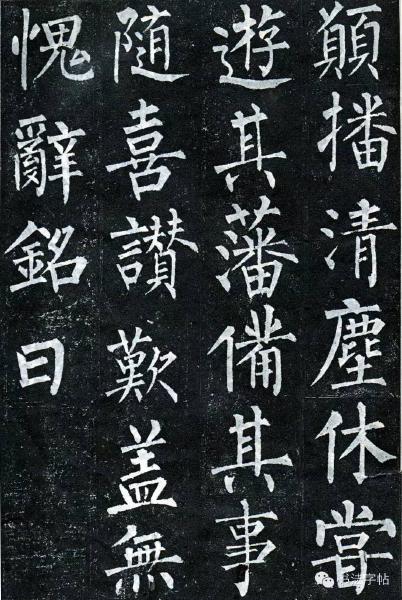 顛播清塵休甞
遊其藩備其事
隨喜讃歎盖無
愧辭銘曰
书法字帖